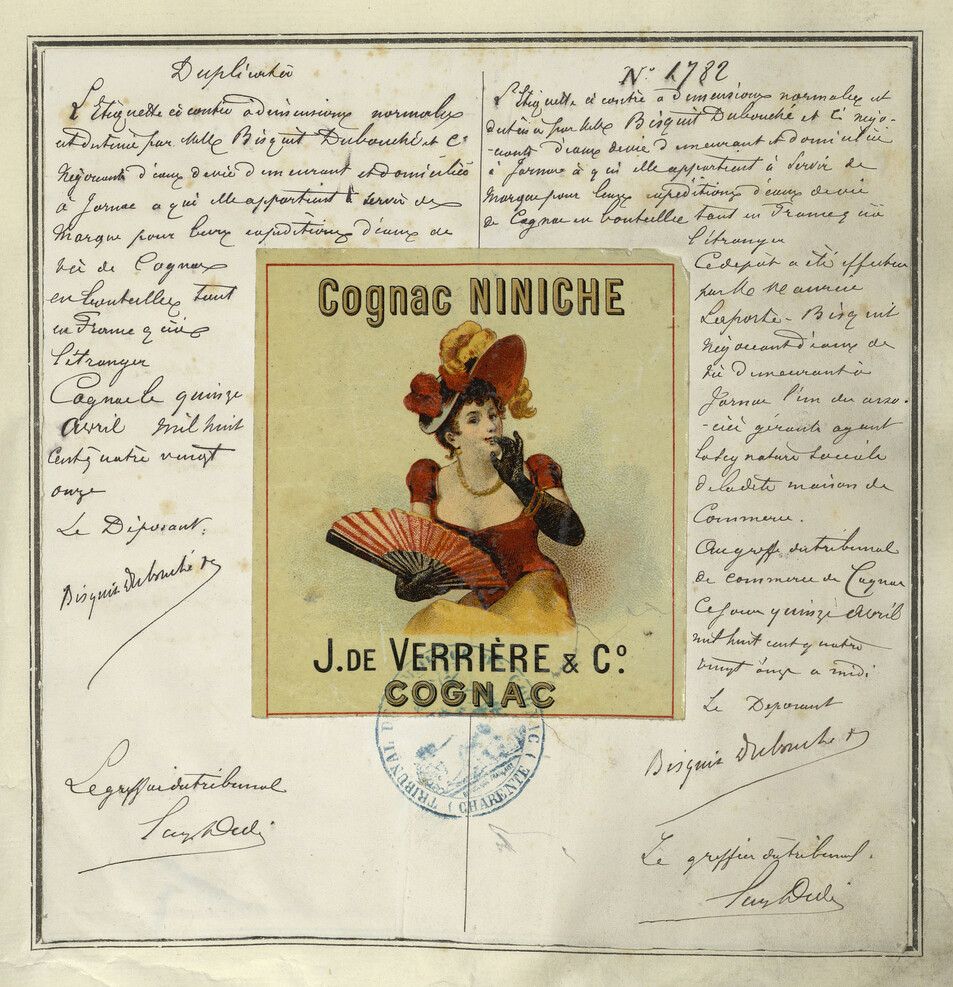 Duplicata
L'Etiquette ci contre à dimensions normales
est destinée par MM. Bisquit Dubouché et Cie
Négociants d'eaux de vie demeurant et domiciliés
à Jarnac a qui elle appartient à servir de
Marque pour leurs expéditions d'eaux de
vie de Cognac
en bouteilles tant
en France qu'à
l'étranger
Cognac le quinze
Avril mil huit
cent quatre vingt
onze
Le Déposant,
Bisquit Dubouché &
Le greffier du tribunal
Cognac NINICHE
J. DE VERRIÈRE & Co
COGNAC
TRIBUNAL DE
CHARENTE
No 1782
L'Etiquette ci contre à dimensions normales est
par MM. Bisquit Dubouché et Cie négo-
-ciants d'eaux de vie demeurant et domiciliés
à Jarnac à qui elle appartient à servir de
Marque pour leurs expéditions d'eaux de vie
de Cognac en bouteilles tant en France qu'à
l'étranger
Ce dépôt a été effectué
par M. Maurice
Laporte-Bisquit
Négociant d'eaux de
vie demeurant à
Jarnac l'un des asso-
-ciés gérants ayant
la signature sociale
de la dite maison de
Commerce.
Au greffe du tribunal
de commerce de Cognac
Ce jour quinze Avril
mil huit cent quatre
vingt onze a midi
Le Déposant
Bisquit Dubouché &
Le greffier du tribunal.